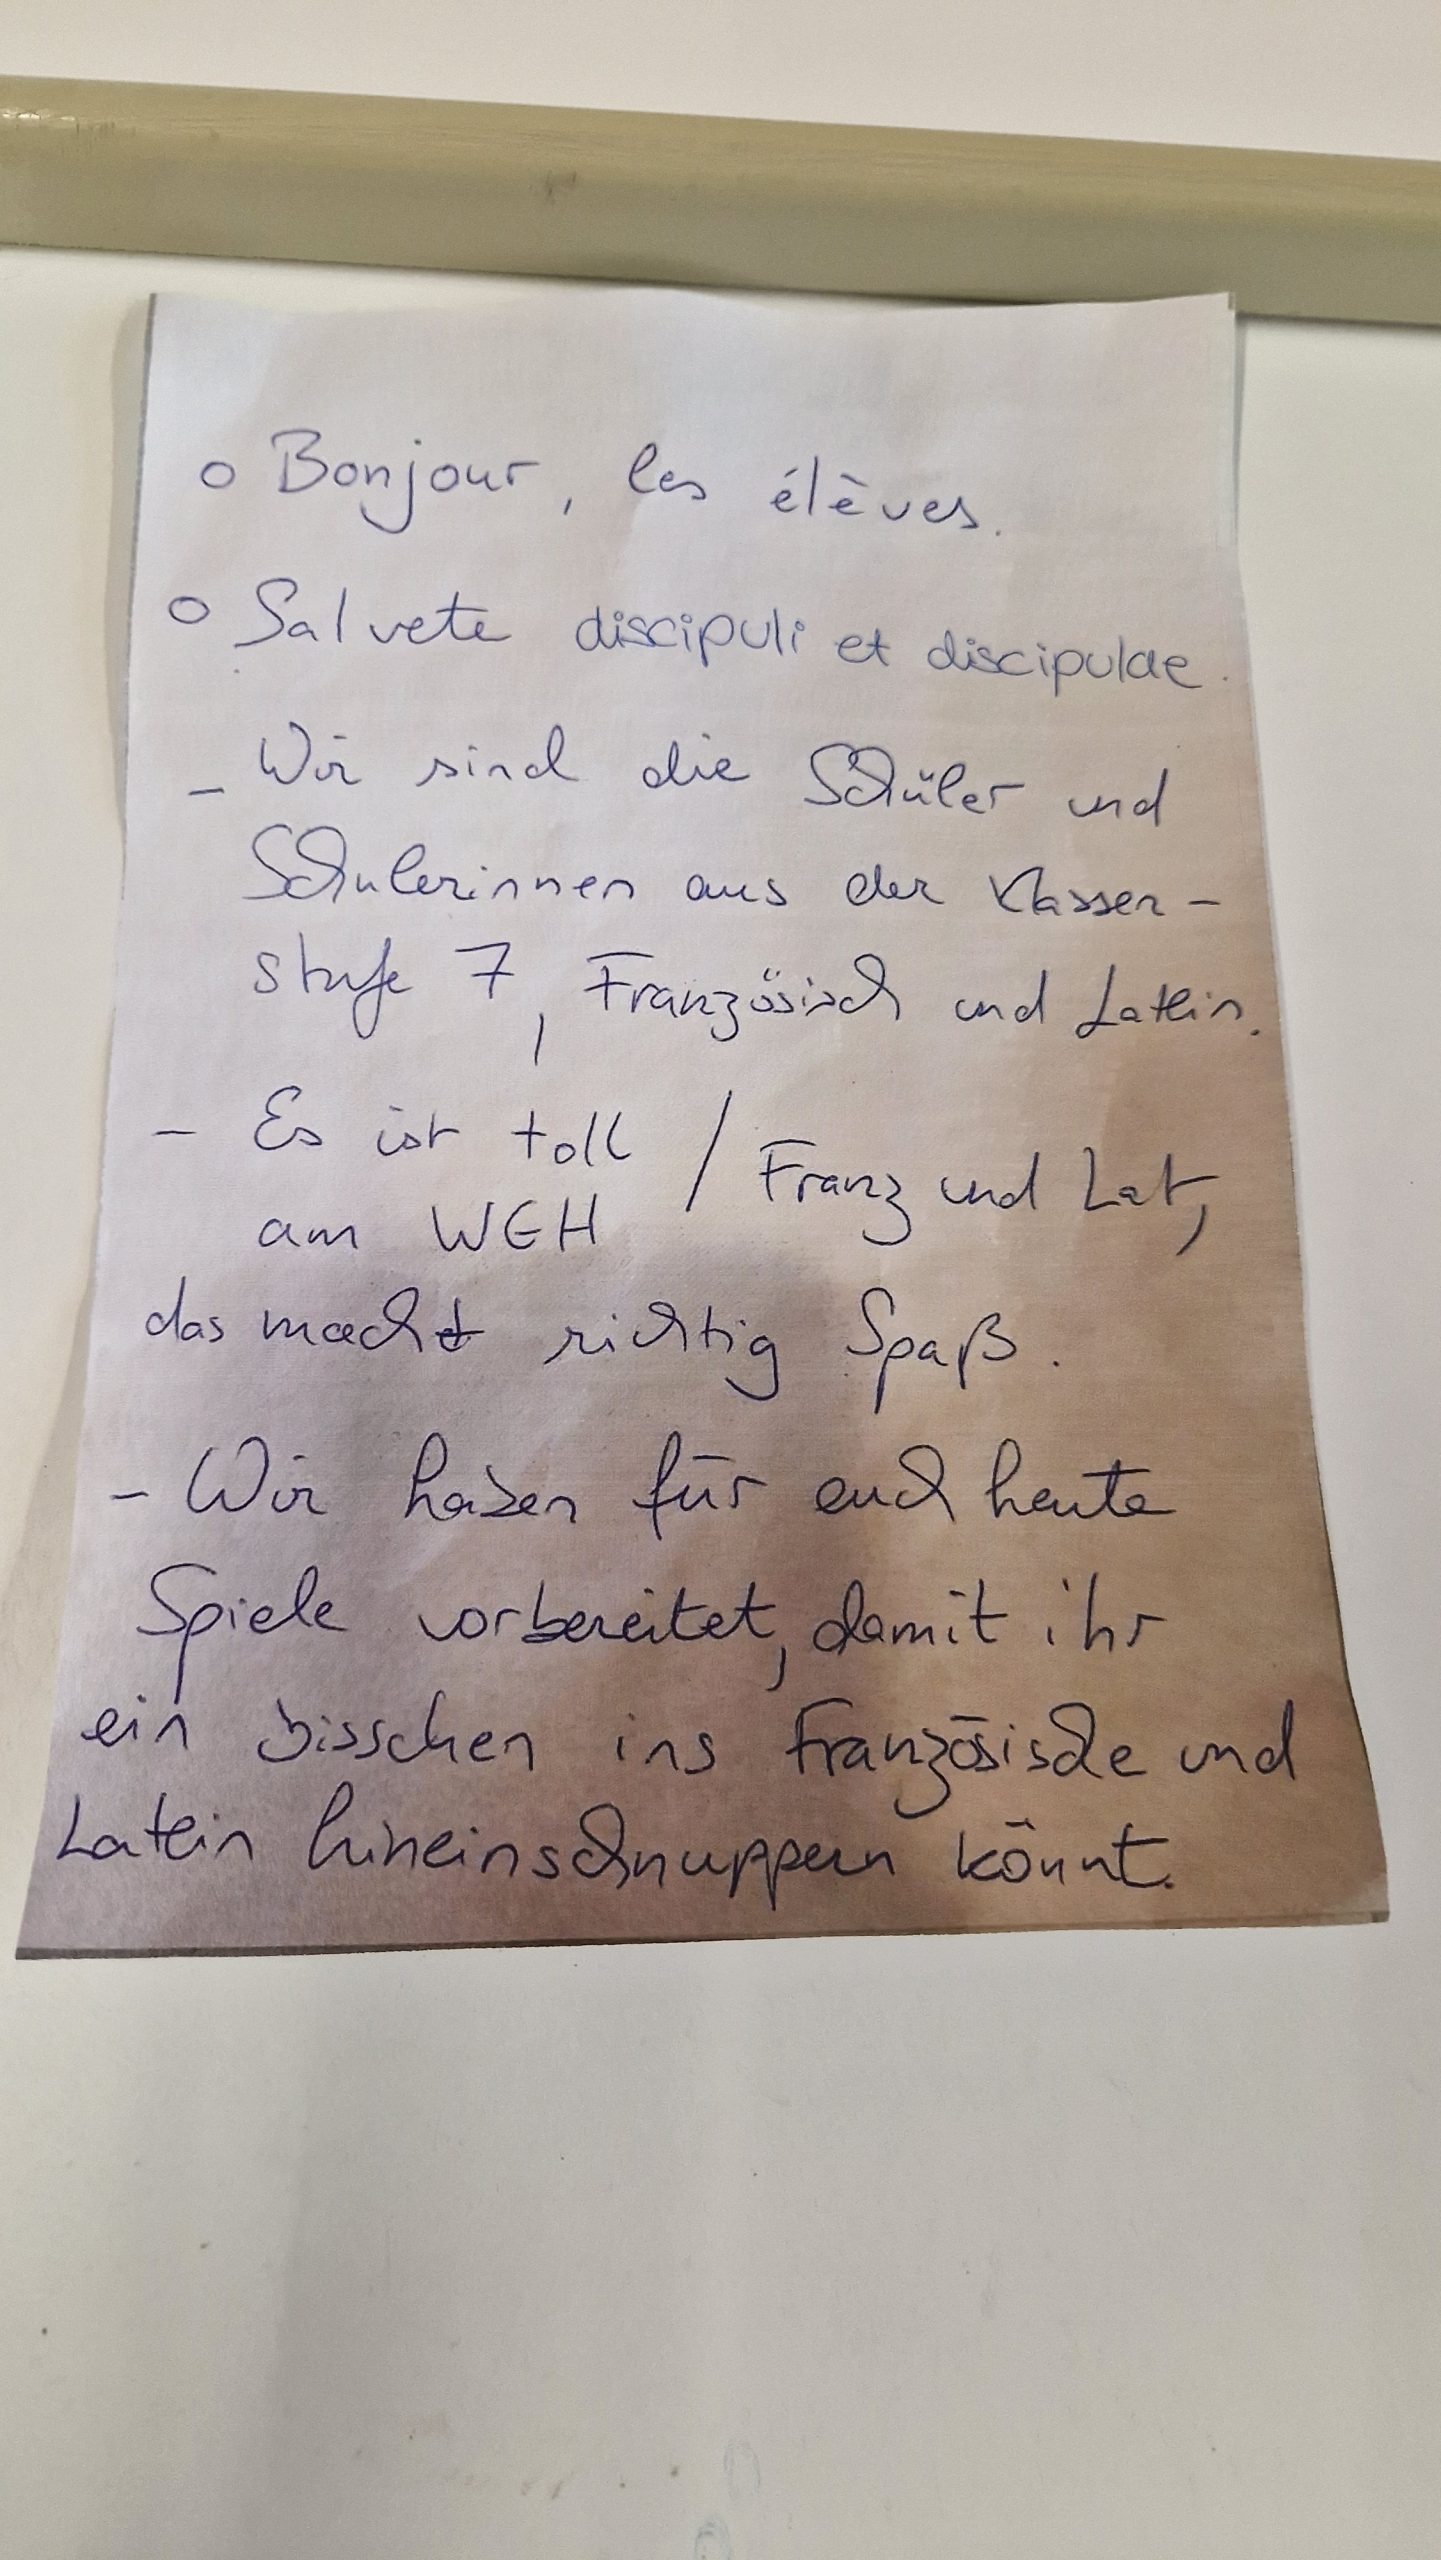 o Bonjour, les élèves.
o Salvete discipuli et discipulae.
- Wir sind die Schüler und
Schülerinnen aus der Klassen-
stufe 7, Französisch und Latein.
- Es ist toll / Franz und Lat,
am WEH
das macht richtig Spaß.
- Wir haben für euch heute
Spiele vorbereitet, damit ihr
ein bisschen ins Französische und
Latein hineinschnuppern könnt.